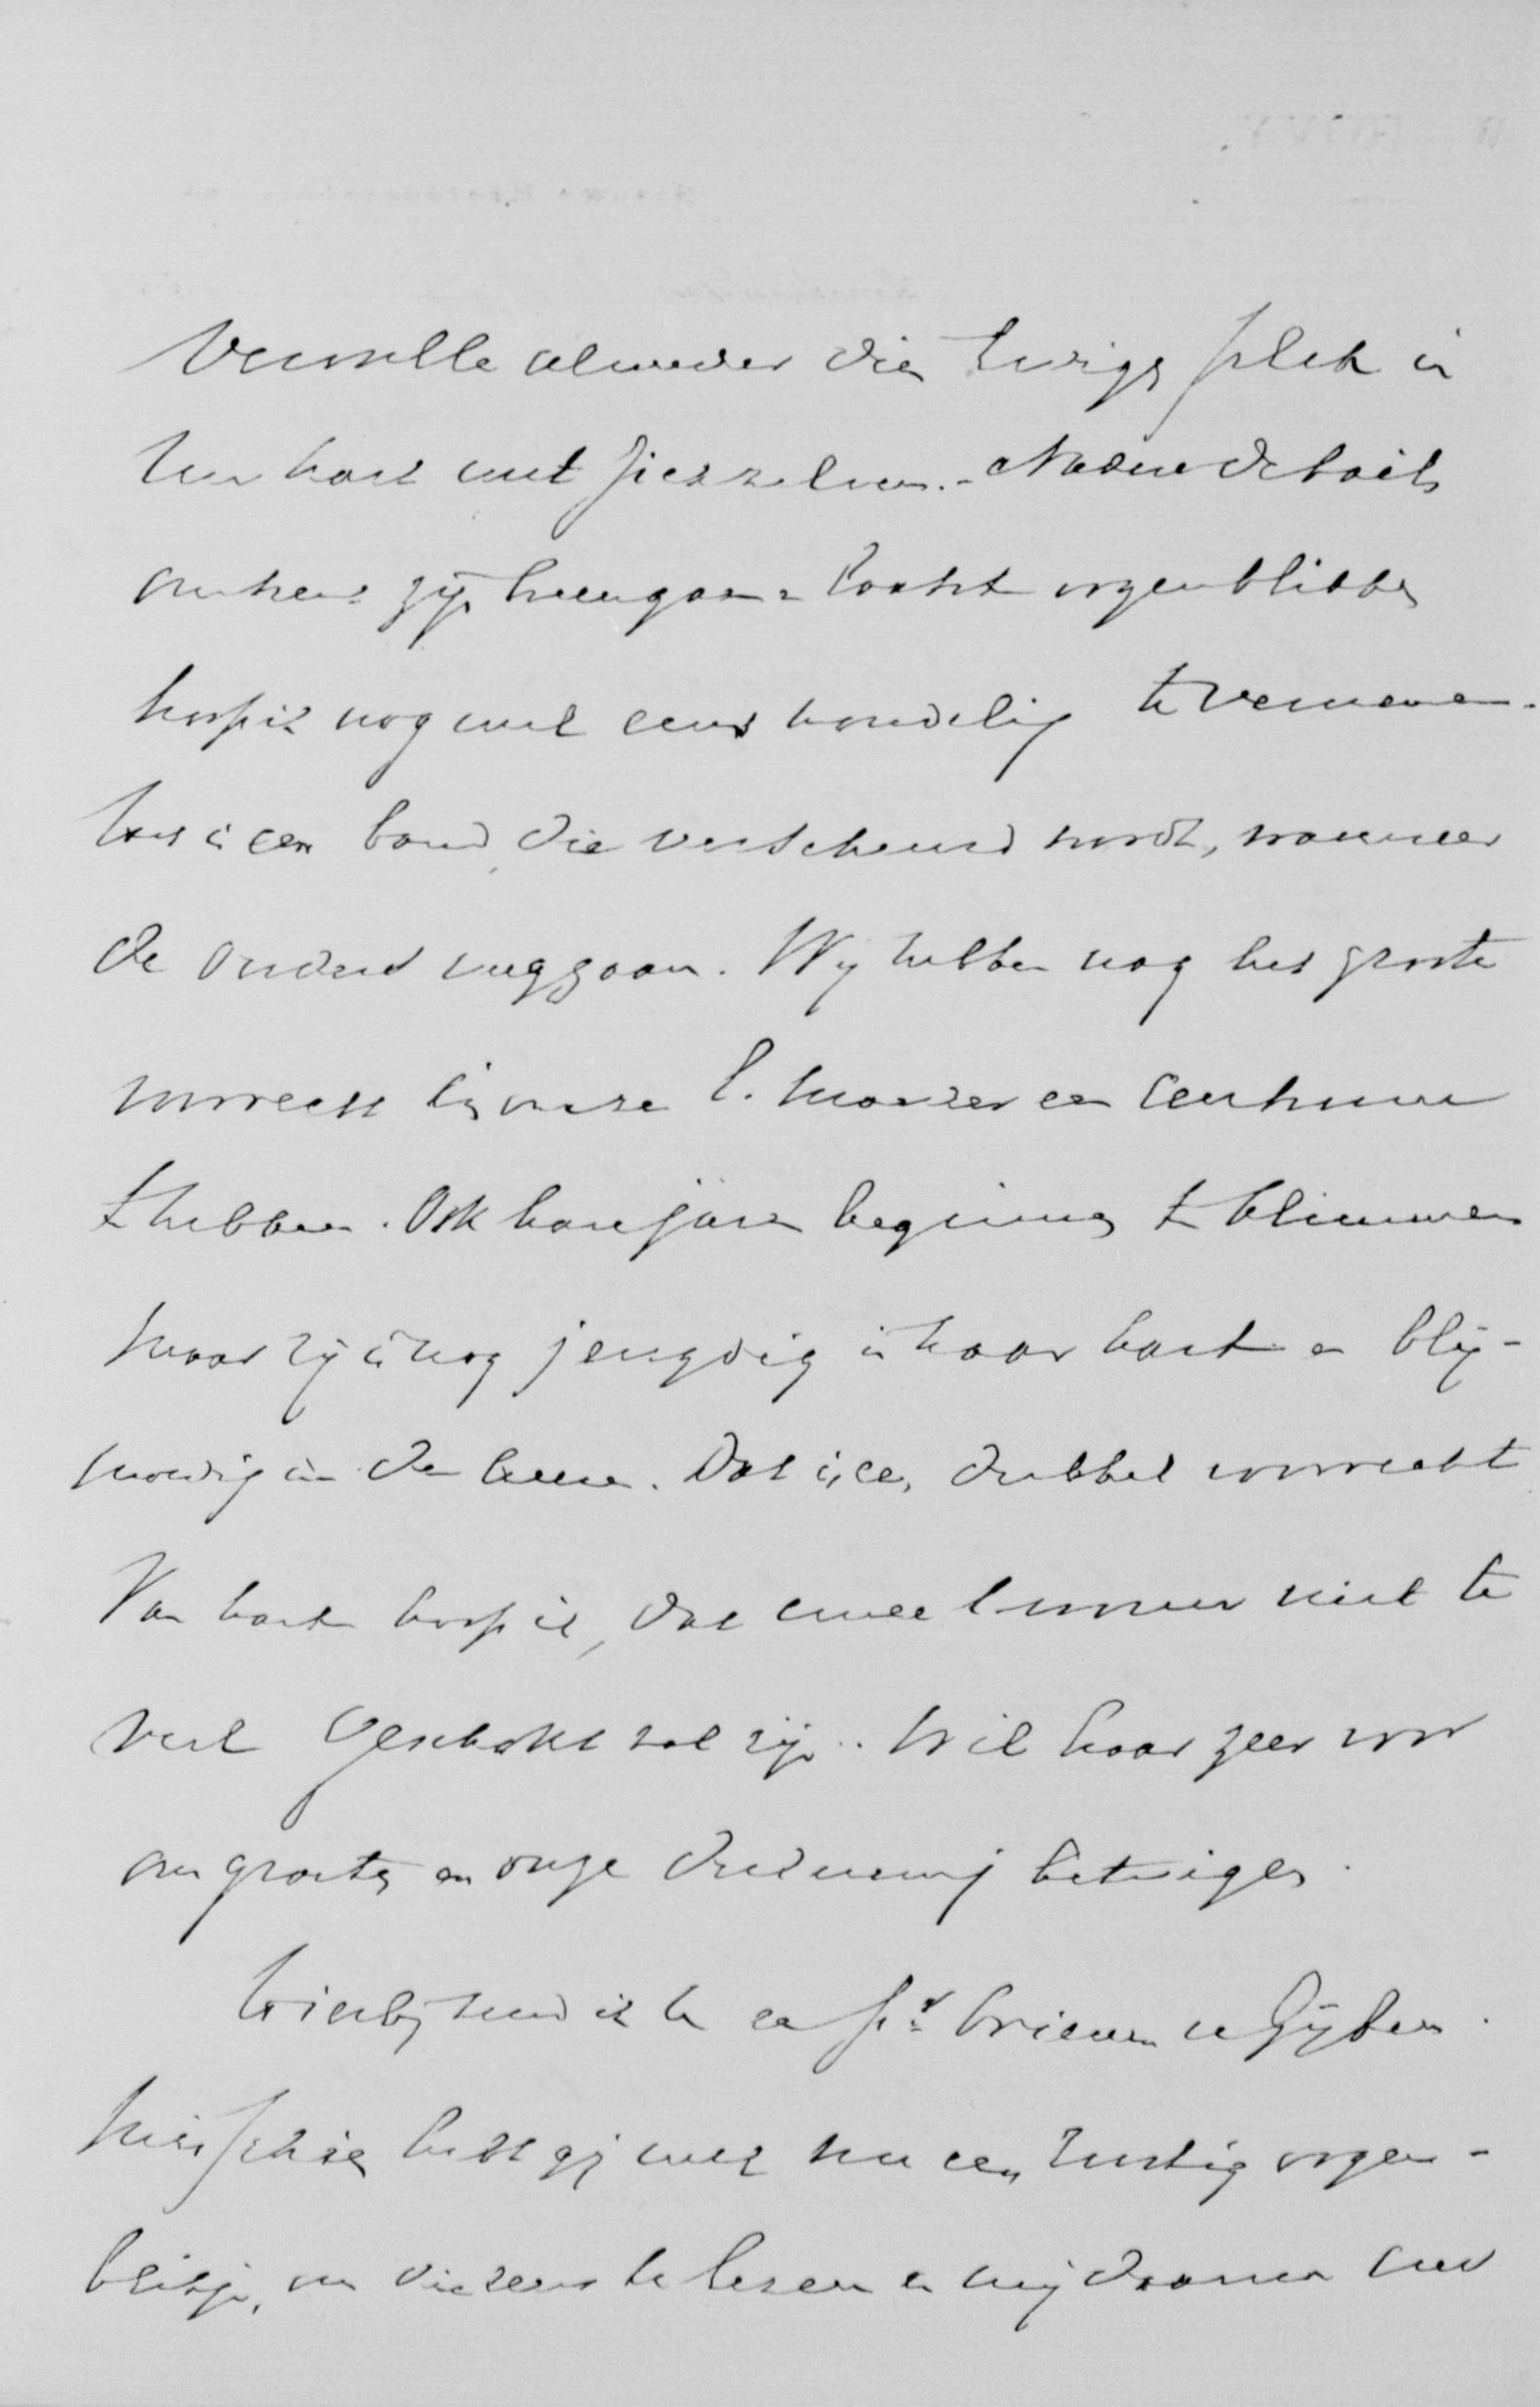 Vervulle alweder die ledige plek in
Uw hart met Zich zelven. - Nadere details
omtrent zijn heengaan laatste oogenblikken
hoop ik nog wel eens mondelig te vernemen.
Het is een band, die verscheurd wordt, wanneer
de ouders weggaan. Wij hebben nog het groote
voorrecht bij onze l. moeder een centrum
te hebben. Ook hare jaren beginnen te klimmen
maar zij is nog jeugdig in haar hart en blij-
moedig in den Heere. Dat is een dubbel voorrecht
Van harte hoop ik, dat Uwe l. vrouw niet te
veel geschokt zal zijn. Wil haar zeer voor
ons groeten en onze deelneming betuigen.
Hierbij zend ik U een pr brieven v. Gijben.
Misschien hebt gij wel nu een rustig oogen-
blikje, om die eens te lezen en mij daarna Uw